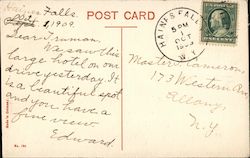 Haines Falls.
Oct. 1, 1909.
POST CARD
HAINES FALLS
5 PM
OCT
1909
N.Y.
Dear Truman,
We saw this
large hotel on our
drive yesterday. It
is a beautiful spot
and you have a
fine view
Edward.
Master Cameron
173 Western Av
Albany
N.Y.